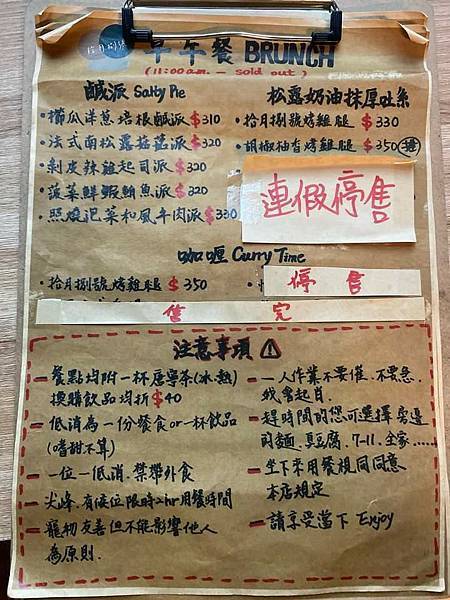 早午餐 BRUNCH
(11:00a.m. - sold out)
鹹派 Salty Pie
松露奶油抹厚吐司
・櫛瓜洋蔥培根鹹派 $310
・拾月捌號烤雞腿 $330
・法式南松露菇菇派 $320
・胡椒柚香烤雞腿 $350
・剝皮辣雞起司派 $320
・菠菜鮮蝦鮪魚派 $320
連假停售
・照燒泡菜和風牛肉派 $330
咖喱 Curry Time
・拾月捌號烤雞腿 $350
停售
售完
注意事項
- 餐點均附一杯唐寧茶(冰.熱)
換購飲品均折 $40
- 低消為一份餐食 or 一杯飲品
(嗜甜不算)
- 一位一低消.禁帶外食
- 尖峰.有候位限時2hr用餐時間
- 寵物友善但不能影響他人
為原則.
- 一人作業不要催.不要急.
我會起肖.
- 趕時間的您可選擇旁邊
的麵.臭豆腐.7-11.全家.....
- 坐下來用餐視同同意
本店規定
- 請享受當下 Enjoy